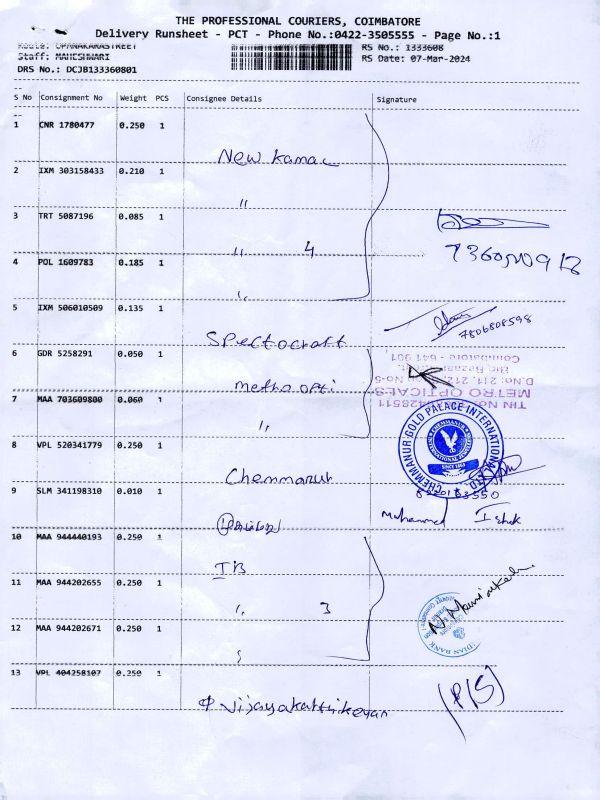 THE PROFESSIONAL COURIERS, COIMBATORE
Delivery Runsheet - PCT - Phone No.:0422-3505555 - Page No.:1
Route: OPANAKARASTREET
RS No.: 1333608
Staff: MAHESHWARI
RS Date: 07-Mar-2024
DRS No.: DCJB133360801
S No Consignment No Weight PCS Consignee Details Signature
1 CNR 1780477 0.250 1
New Kamal
2 IXM 303158433 0.210 1
"
3 TRT 5087196 0.085 1
" 4
4 POL 1609783 0.185 1
"
5 IXM 506010509 0.135 1
7806808598
Spectocraft
6 GDR 5258291 0.050 1
Metro opti
7 MAA 703609800 0.060 1
"
TIN No
METRO OPTICALS
Coimbatore - 641 001
CHEMMANUR GOLD PALACE INTERNATIONAL LTD
SINCE 1863
8 VPL 520341779 0.250 1
Chemmanur
9 SLM 341198310 0.010 1
Muhammed Ishak
10 MAA 944440193 0.250 1
IB
11 MAA 944202655 0.250 1
" 3
12 MAA 944202671 0.250 1
"
INDIAN BANK
13 VPL 404258107 0.250 1
Vijayakarthikeyan
(P/S)